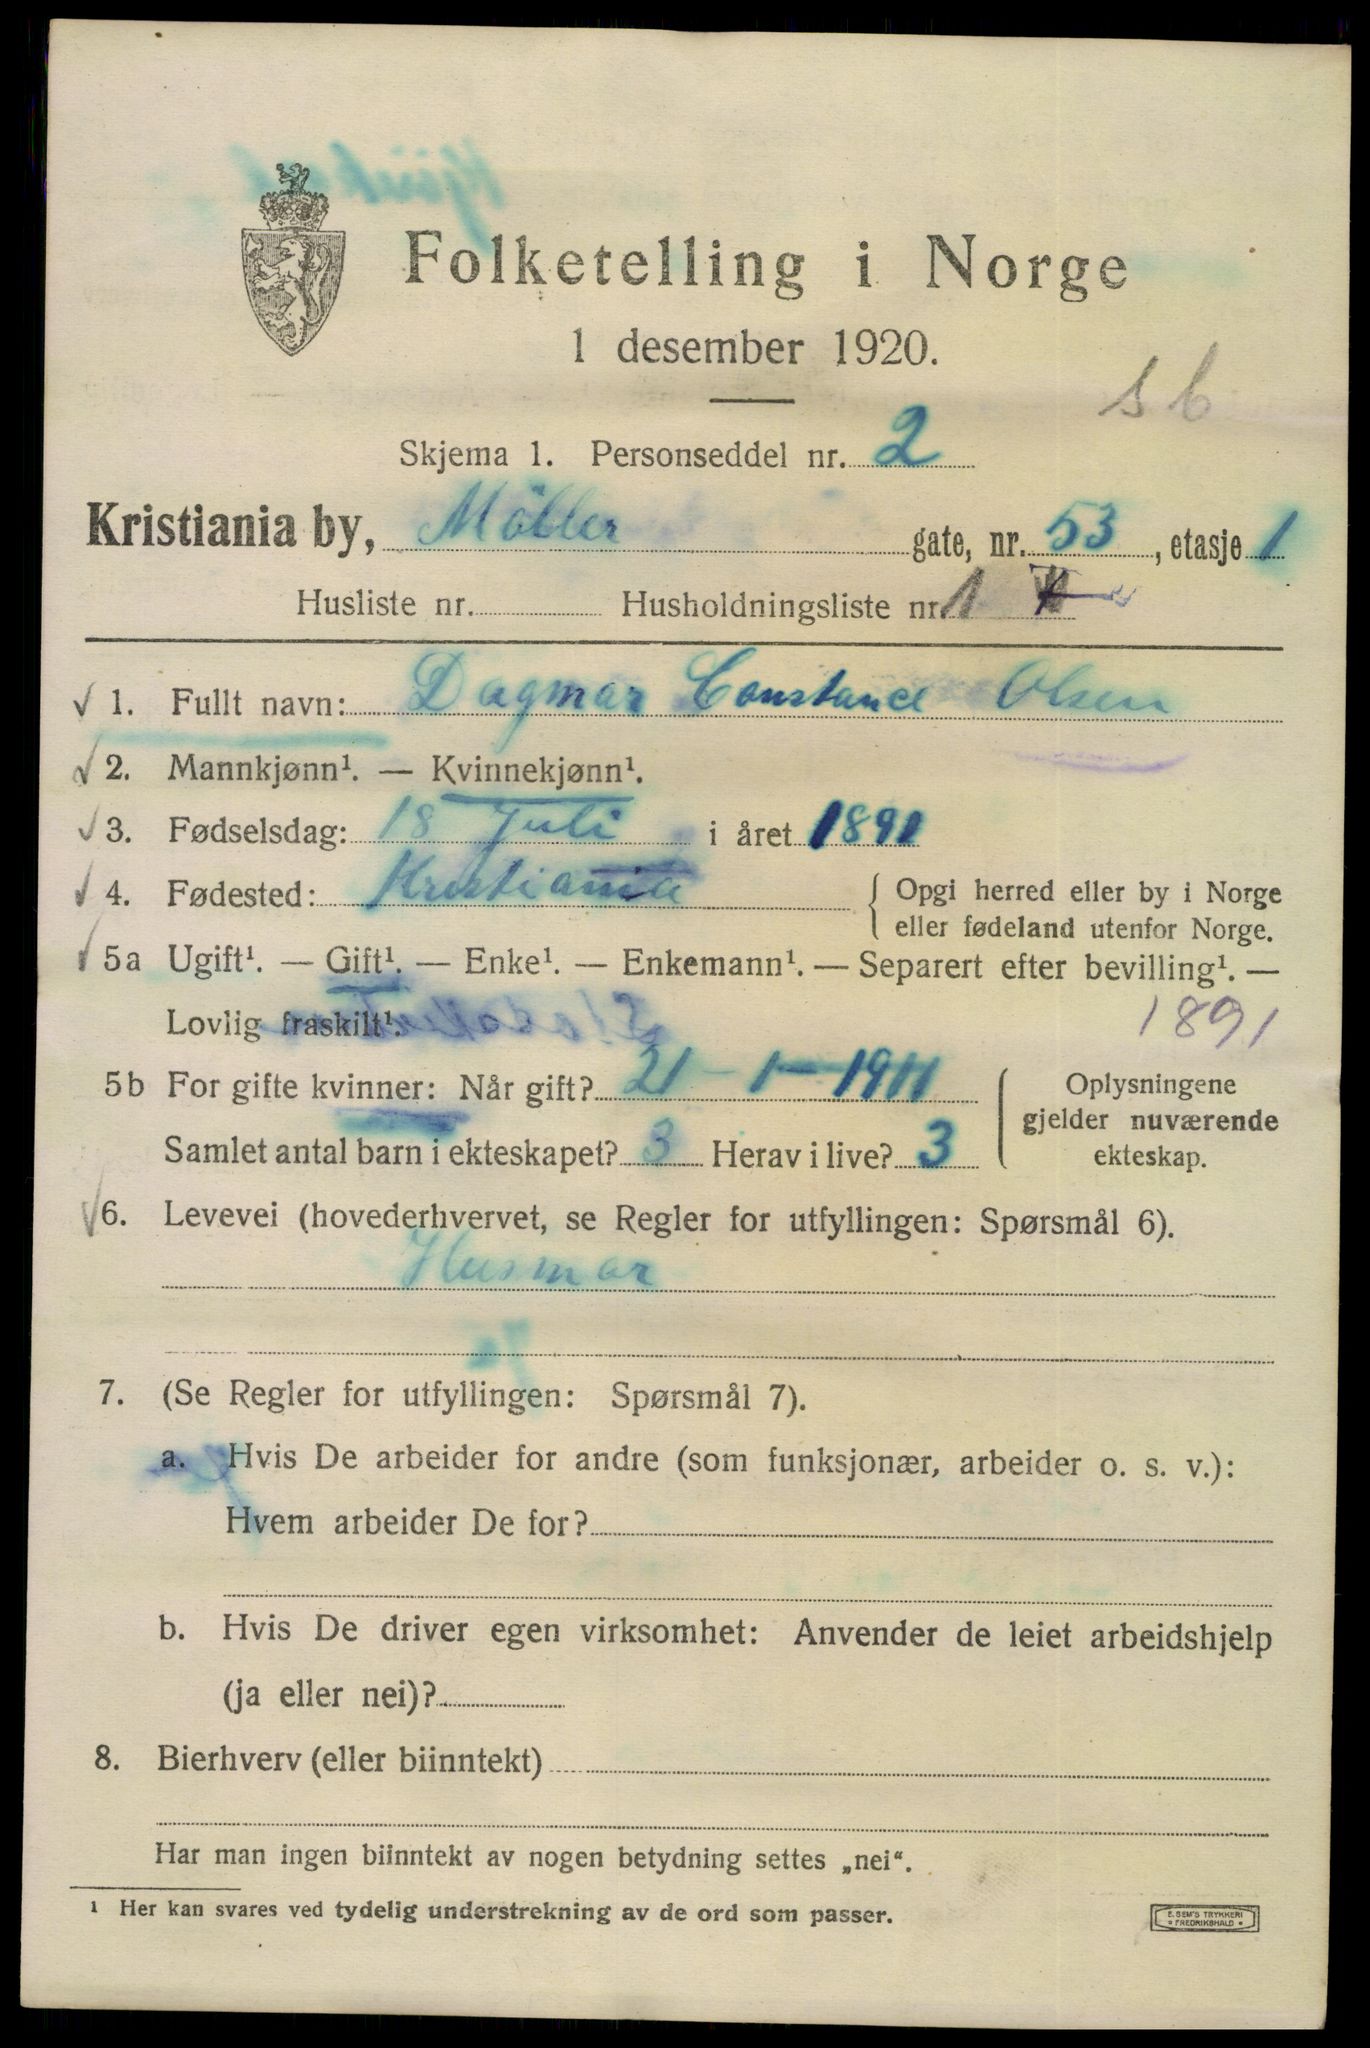 Folketelling i Norge
1 desember 1920.
s b
Skjema 1. Personseddel nr. 2
Kristiania by, Möller gate, nr. 53, etasje 1
Husliste nr. Husholdningsliste nr. 1
1. Fullt navn: Dagmar Constance Olsen
2. Mannkjønn¹. — Kvinnekjønn¹.
3. Fødselsdag: 18 Juli i året 1891
4. Fødested: Kristiania { Opgi herred eller by i Norge
eller fødeland utenfor Norge.
5a Ugift¹. — Gift¹. — Enke¹. — Enkemann¹. — Separert efter bevilling¹. —
Lovlig fraskilt¹. 1891
5b For gifte kvinner: Når gift? 21 - 1 - 1911
Samlet antal barn i ekteskapet? 3 Herav i live? 3
Oplysningene
gjelder nuværende
ekteskap.
6. Levevei (hovederhvervet, se Regler for utfyllingen: Spørsmål 6).
Husmor
7. (Se Regler for utfyllingen: Spørsmål 7).
a. Hvis De arbeider for andre (som funksjonær, arbeider o. s. v.):
Hvem arbeider De for?
b. Hvis De driver egen virksomhet: Anvender de leiet arbeidshjelp
(ja eller nei)?
8. Bierhverv (eller biinntekt)
Har man ingen biinntekt av nogen betydning settes „nei“.
1 Her kan svares ved tydelig understrekning av de ord som passer.
E. SEM'S TRYKKERI
* FREDRIKSHALD *